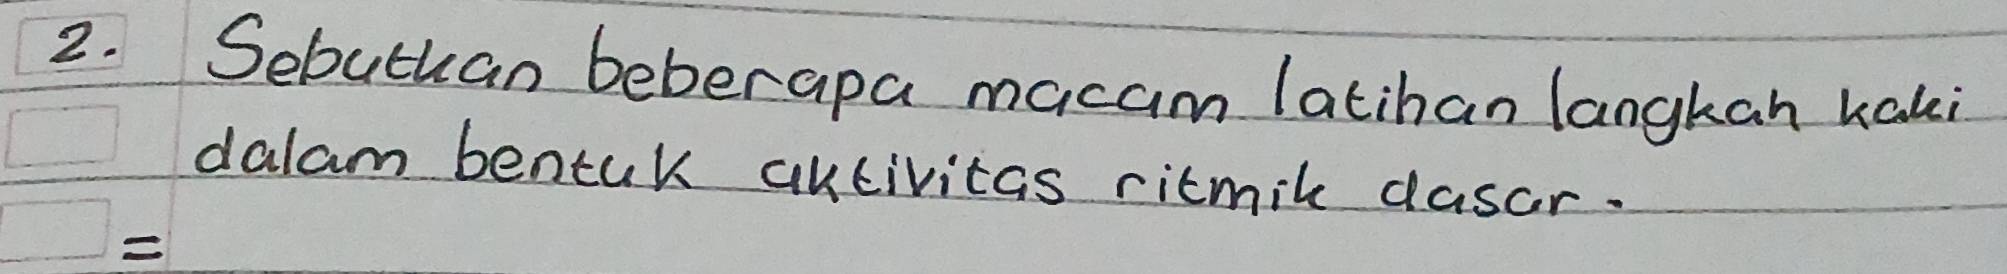 2. Sebutkan beberapa macam latihan langkah kaki
dalam bentuk aktivitas ritmik dasar.
=